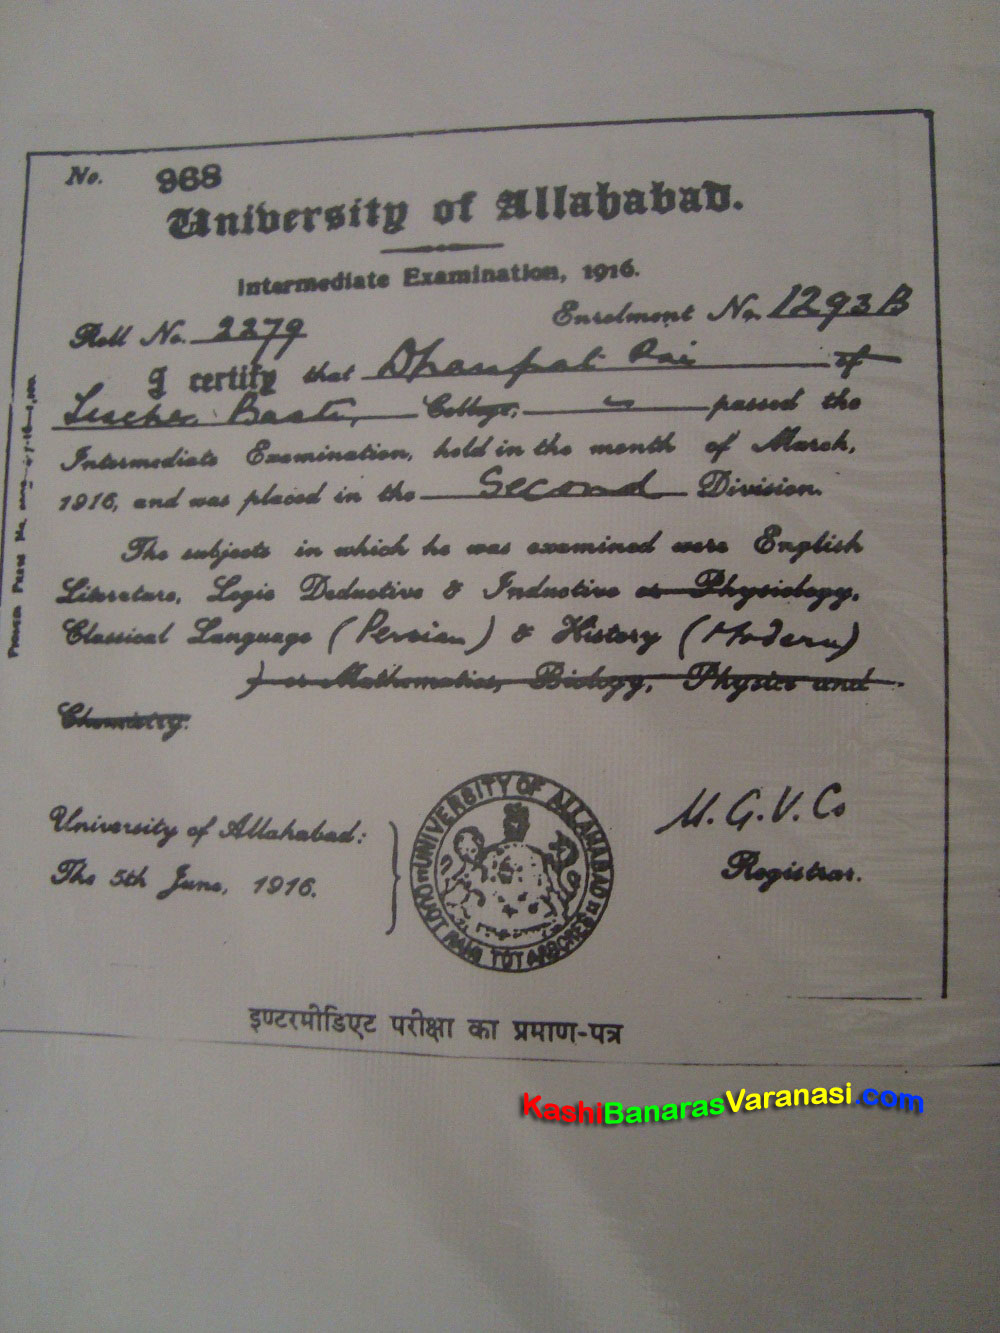 No. 968
University of Allahabad.
Intermediate Examination, 1916.
Roll No. 2279 Enrolment No. 1293 B
I certify that Dhanpat Rai of
Basti, College, passed the
Intermediate Examination, held in the month of March,
1916, and was placed in the Second Division.
The subjects in which he was examined were English
Literature, Logic Deductive & Inductive or Physiology,
Classical Language (Persian) & History (Modern)
) or Mathematics, Biology, Physics and
Chemistry.
University of Allahabad:
The 5th June, 1916.
UNIVERSITY OF ALLAHABAD
QUOT RAMI TOT ARBORES
M. G. V. Co
Registrar.
इण्टरमीडिएट परीक्षा का प्रमाण-पत्र
KashiBanarasVaranasi.com